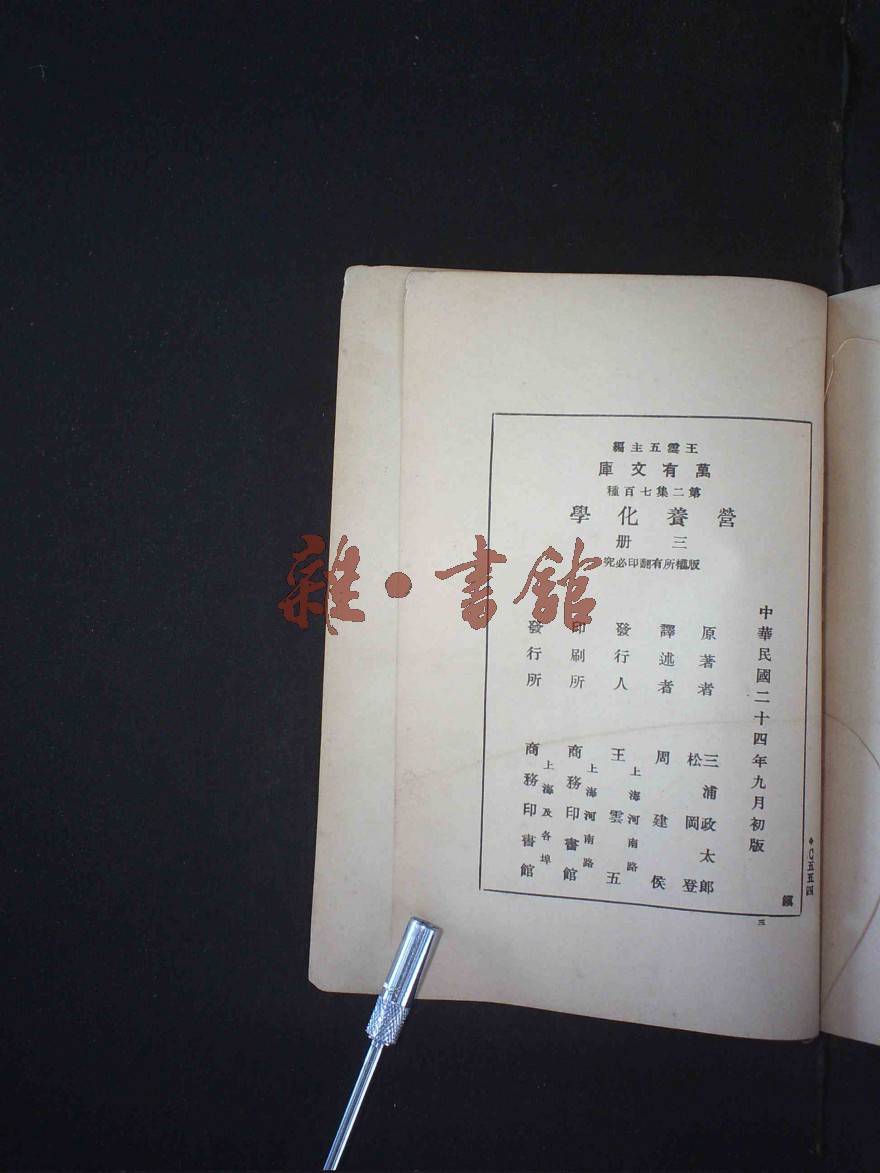 王雲五主編
萬有文庫
第二集七百種
營養化學
三册
版權所有翻印必究
中華民國二十四年九月初版
原著者 三浦政太郎
松岡登
譯述者 周建侯
發行人 上海河南路
王雲五
印刷所 上海河南路
商務印書館
發行所 上海及各埠
商務印書館
〇五五四
三
雜·書館